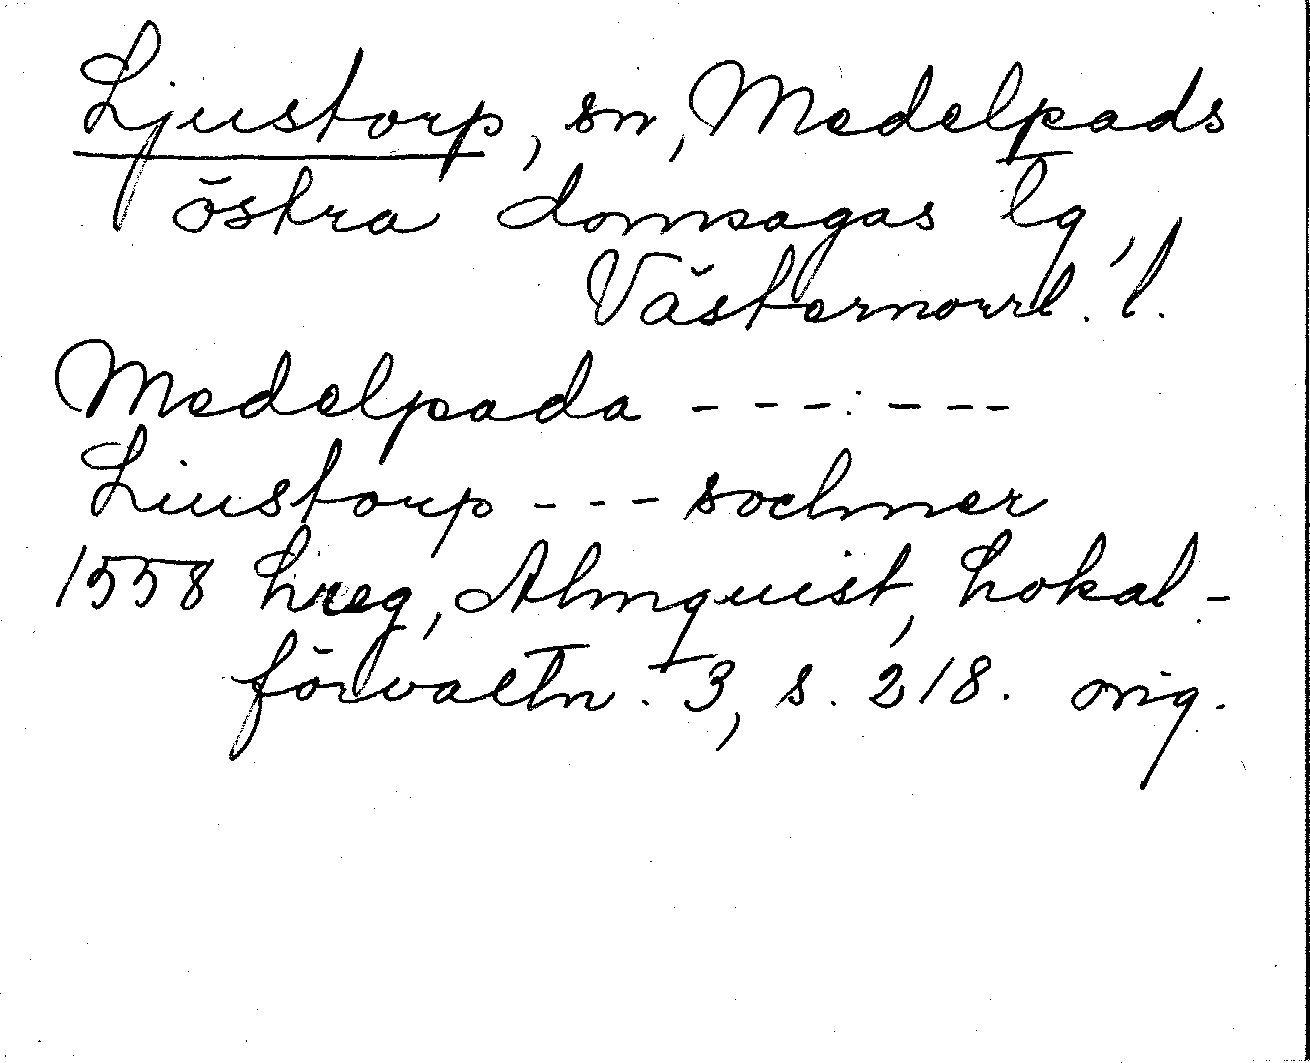 Ljustorp, sn, Medelpads
östra domsagas tg,
Västernorrl. l.
Medelpada - - - - - -
Liustorp - - - sochner
1558 hreg, Almquist, Lokal-
förvaltn. 3, s. 218. orig.